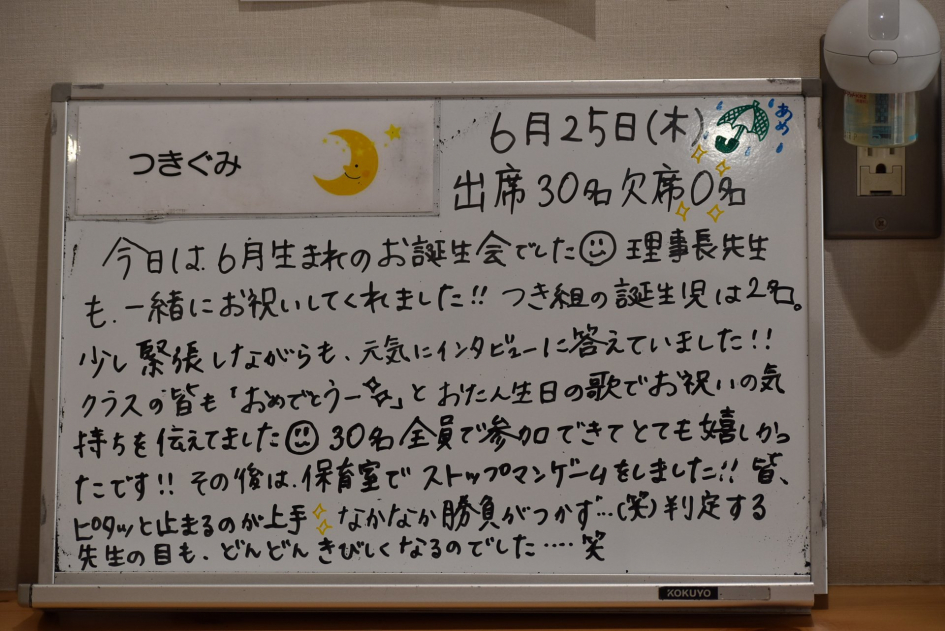 つきぐみ
6月25日(木)
あめ
出席30名欠席0名
今日は、6月生まれのお誕生会でした 理事長先生
も、一緒にお祝いしてくれました!! つき組の誕生児は2名。
少し緊張しながらも、元気にインタビューに答えていました!!
クラスの皆も「おめでとうー」とおたん生日の歌でお祝いの気
持ちを伝えてました 30名全員で参加できてとても嬉しかっ
たです!! その後は、保育室でストップマンゲームをしました!! 皆、
ピタッと止まるのが上手 なかなか勝負がつかず…(笑)判定する
先生の目も、どんどんきびしくなるのでした…. 笑
KOKUYO